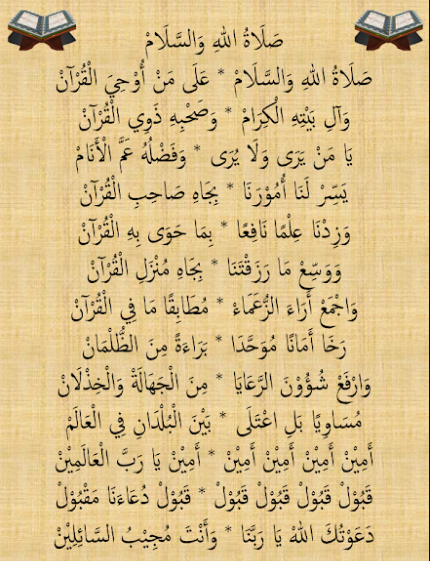 صَلَاةُ اللهِ وَالسَّلَامْ
صَلَاةُ اللهِ وَالسَّلَامْ * عَلَى مَنْ أُوْحِيَ الْقُرْآنْ
وَآلِ بَيْتِهِ الْكِرَامْ * وَصَحْبِهِ ذَوِي الْقُرْآنْ
يَا مَنْ يَرَى وَلَا يُرَى * وَفَضْلُهُ عَمَّ الْأَنَامْ
يَسِّرْ لَنَا أُمُوْرَنَا * بِجَاهِ صَاحِبِ الْقُرْآنْ
وَزِدْنَا عِلْمًا نَافِعًا * بِمَا حَوَى بِهِ الْقُرْآنْ
وَوَسِّعْ مَا رَزَقْتَنَا * بِجَاهِ مُنْزَلِ الْقُرْآنْ
وَاجْمَعْ أَرَاءَ الزُّعَمَاءْ * مُطَابِقًا مَا فِي الْقُرْآنْ
رَخَا أَمَانًا مُوَحَّدَا * بَرَاءَةً مِنَ الظُّلْمَانْ
وَارْفَعْ شُؤُوْنَ الرَّعَايَا * مِنَ الْجَهَالَةْ وَالْخِذْلَانْ
مُسَاوِيًا بَلِ اعْتَلَى * بَيْنَ الْبُلْدَانِ فِي الْعَالَمْ
أَمِيْنْ أَمِيْنْ أَمِيْنْ أَمِيْنْ * أَمِيْنْ يَا رَبَّ الْعَالَمِيْنْ
قَبُوْلْ قَبُوْلْ قَبُوْلْ قَبُوْلْ * قَبُوْلْ دُعَاءَنَا مَقْبُوْلْ
دَعَوْتُكَ اللهْ يَا رَبَّنَا * وَأَنْتَ مُجِيْبُ السَّائِلِيْنْ